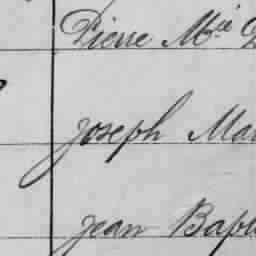 Pierre Mie
Joseph Mar
Jean Bapt